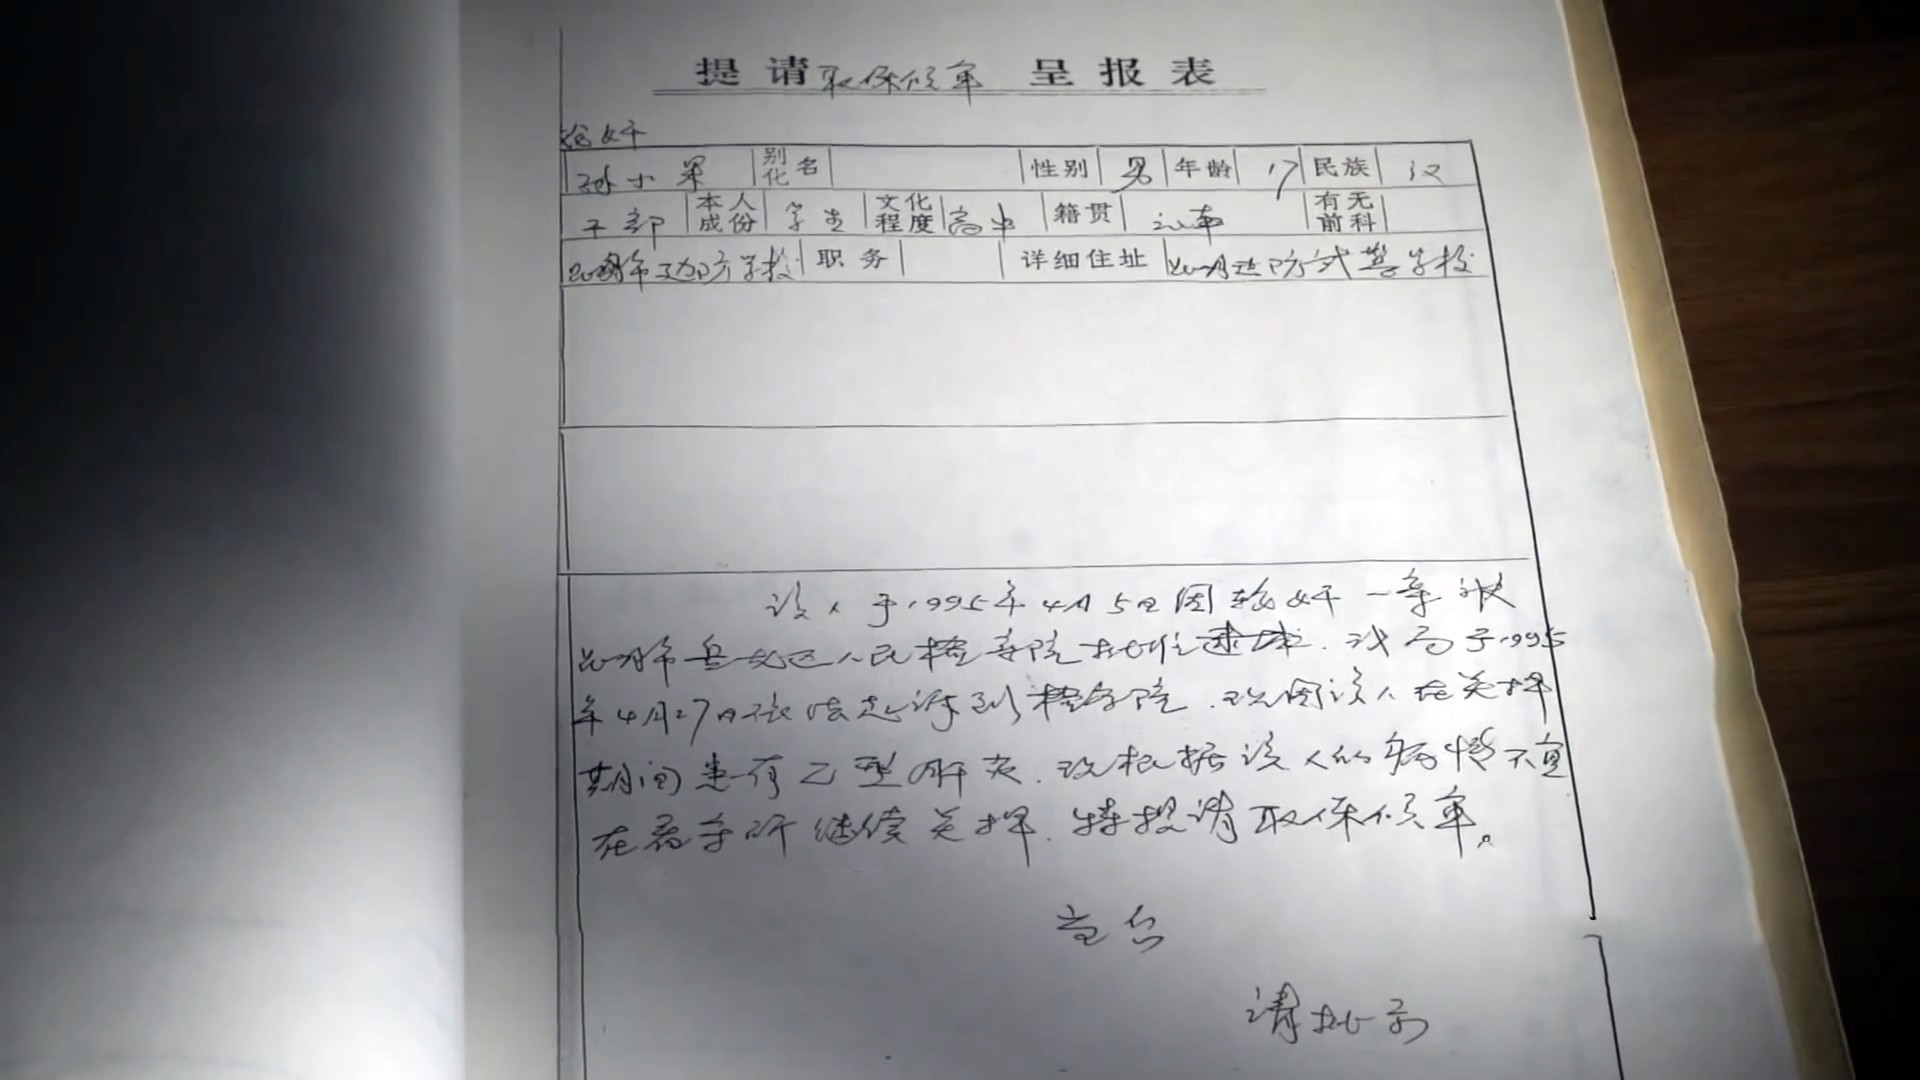 提请取保候审 呈报表
轮奸
孙小果 别化名 性别 男 年龄 17 民族 汉
干部 本人成份 学生 文化程度 高中 籍贯 有无前科
昆明市边防学校 职务 详细住址 昆明边防武警学校
该人于1995年4月5日因轮奸一案被
昆明市盘龙区人民检察院批准逮捕.我局于1995
年4月27日依法起诉到检察院.现因该人在关押
期间患有乙型肝炎.现根据该人的病情不宜
在看守所继续关押.特提请取保候审。
妥否
请批示